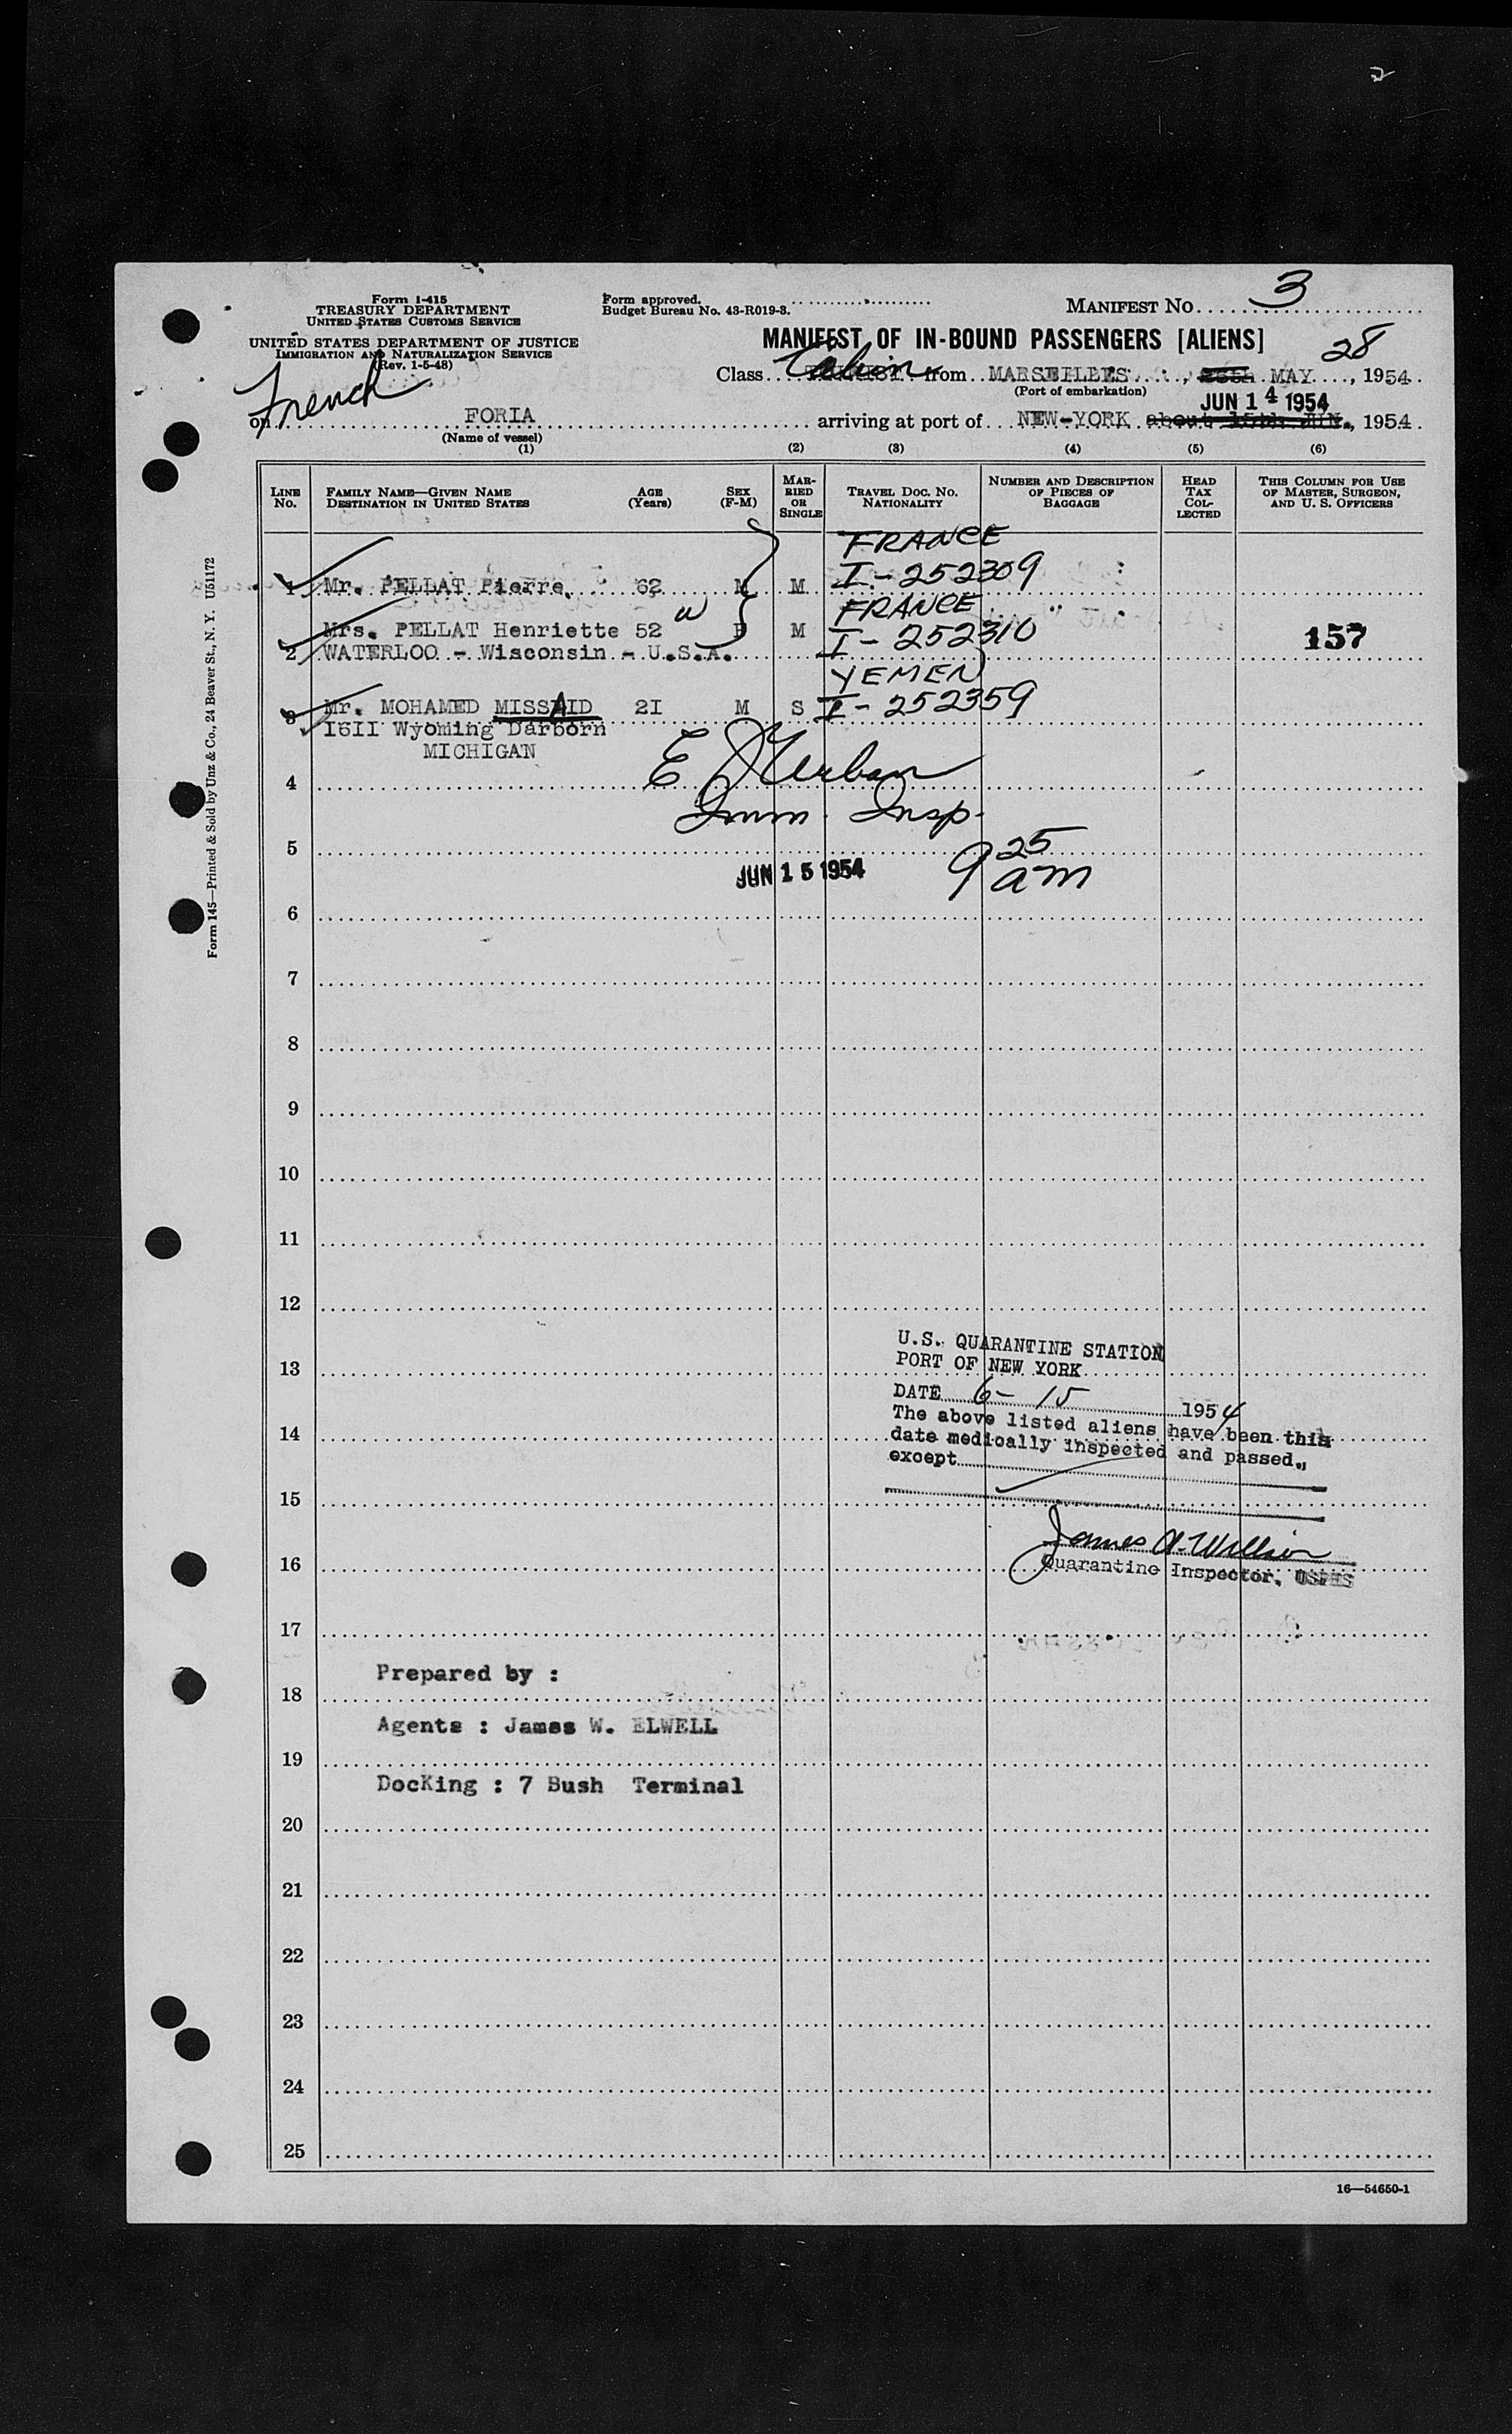 2
Form 1-415
TREASURY DEPARTMENT
UNITED STATES CUSTOMS SERVICE
UNITED STATES DEPARTMENT OF JUSTICE
IMMIGRATION AND NATURALIZATION SERVICE
(Rev. 1-5-48)
Form approved.
Budget Bureau No. 43-R019-3.
MANIFEST No. 3
MANIFEST OF IN-BOUND PASSENGERS [ALIENS]
Class Cabin from MARSEILLES, 28 MAY, 1954
(Port of embarkation)
French
JUN 14 1954
on FORIA arriving at port of NEW-YORK about 15th JUN., 1954
(Name of vessel)
(1) (2) (3) (4) (5) (6)
LINE No. FAMILY NAME—GIVEN NAME DESTINATION IN UNITED STATES AGE (Years) SEX (F-M) MARRIED OR SINGLE TRAVEL DOC. NO. NATIONALITY NUMBER AND DESCRIPTION OF PIECES OF BAGGAGE HEAD TAX COLLECTED THIS COLUMN FOR USE OF MASTER, SURGEON, AND U. S. OFFICERS
FRANCE
1 Mr. PELLAT Pierre. 62 M M I-252309
FRANCE
Mrs. PELLAT Henriette 52 w F M I-252310 157
2 WATERLOO - Wisconsin - U.S.A.
YEMEN
3 Mr. MOHAMED MISSAID 2I M S I-252359
I6II Wyoming Darborn
MICHIGAN
4
E J Urban
Imm. Insp.
5
9 25 am
JUN 15 1954
6
7
8
9
10
11
12
U.S. QUARANTINE STATION
13 PORT OF NEW YORK
DATE 6-15 1954
The above listed aliens have been this
14 date medically inspected and passed,
except
15
James A. Willson
16 Quarantine Inspector, USPHS
17
Prepared by :
18
Agents : James W. ELWELL
19
DocKing : 7 Bush Terminal
20
21
22
23
24
25
16—54650-1
Form 145—Printed & Sold by Unz & Co., 24 Beaver St., N. Y. U51172